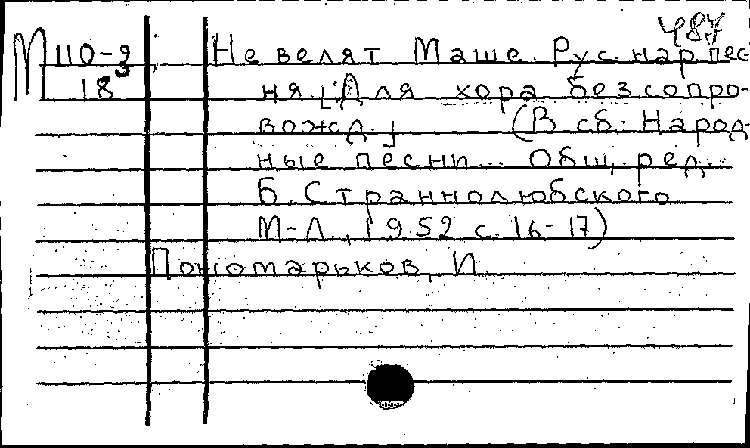 487
М 110-3 Не велят Маше. Рус. нар. пес-
18 ня. [Для хора без сопро-
вожд.] (В сб: Народ-
ные песни... Общ. ред.
Б. Страннолюбского
М-Л., 1952 с. 16-17)
Пономарьков, И.